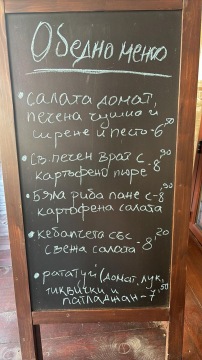 Обедно меню
• салата домат,
печена чушка и
сирене и песто - 6,50
• Св. печен врат с
картофено пюре - 8,90
• Бяла риба пане с
картофена салата - 8,90
• кебапчета със
свежа салата - 8,20
• рататуй (домат, лук,
тиквички и
патладжан - 7,50